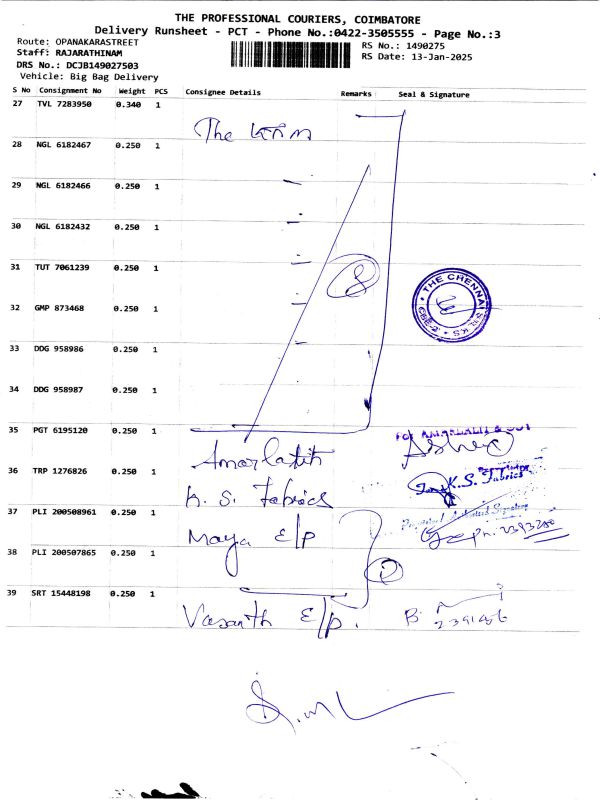 THE PROFESSIONAL COURIERS, COIMBATORE
Delivery Runsheet - PCT - Phone No.:0422-3505555 - Page No.:3
Route: OPANAKARASTREET
RS No.: 1490275
Staff: RAJARATHINAM
RS Date: 13-Jan-2025
DRS No.: DCJB149027503
Vehicle: Big Bag Delivery
S No Consignment No Weight PCS Consignee Details Remarks Seal & Signature
27 TVL 7283950 0.340 1
The
28 NGL 6182467 0.250 1
29 NGL 6182466 0.250 1
30 NGL 6182432 0.250 1
31 TUT 7061239 0.250 1
8
32 GMP 873468 0.250 1
THE CHENNAI SILKS
33 DDG 958986 0.250 1
34 DDG 958987 0.250 1
35 PGT 6195120 0.250 1
Amarlatih
36 TRP 1276826 0.250 1
For K.S. Fabrics
K. S. Fabrics
37 PLI 200508961 0.250 1
Maya E/P
38 PLI 200507865 0.250 1
39 SRT 15448198 0.250 1
Vasanth E/P.